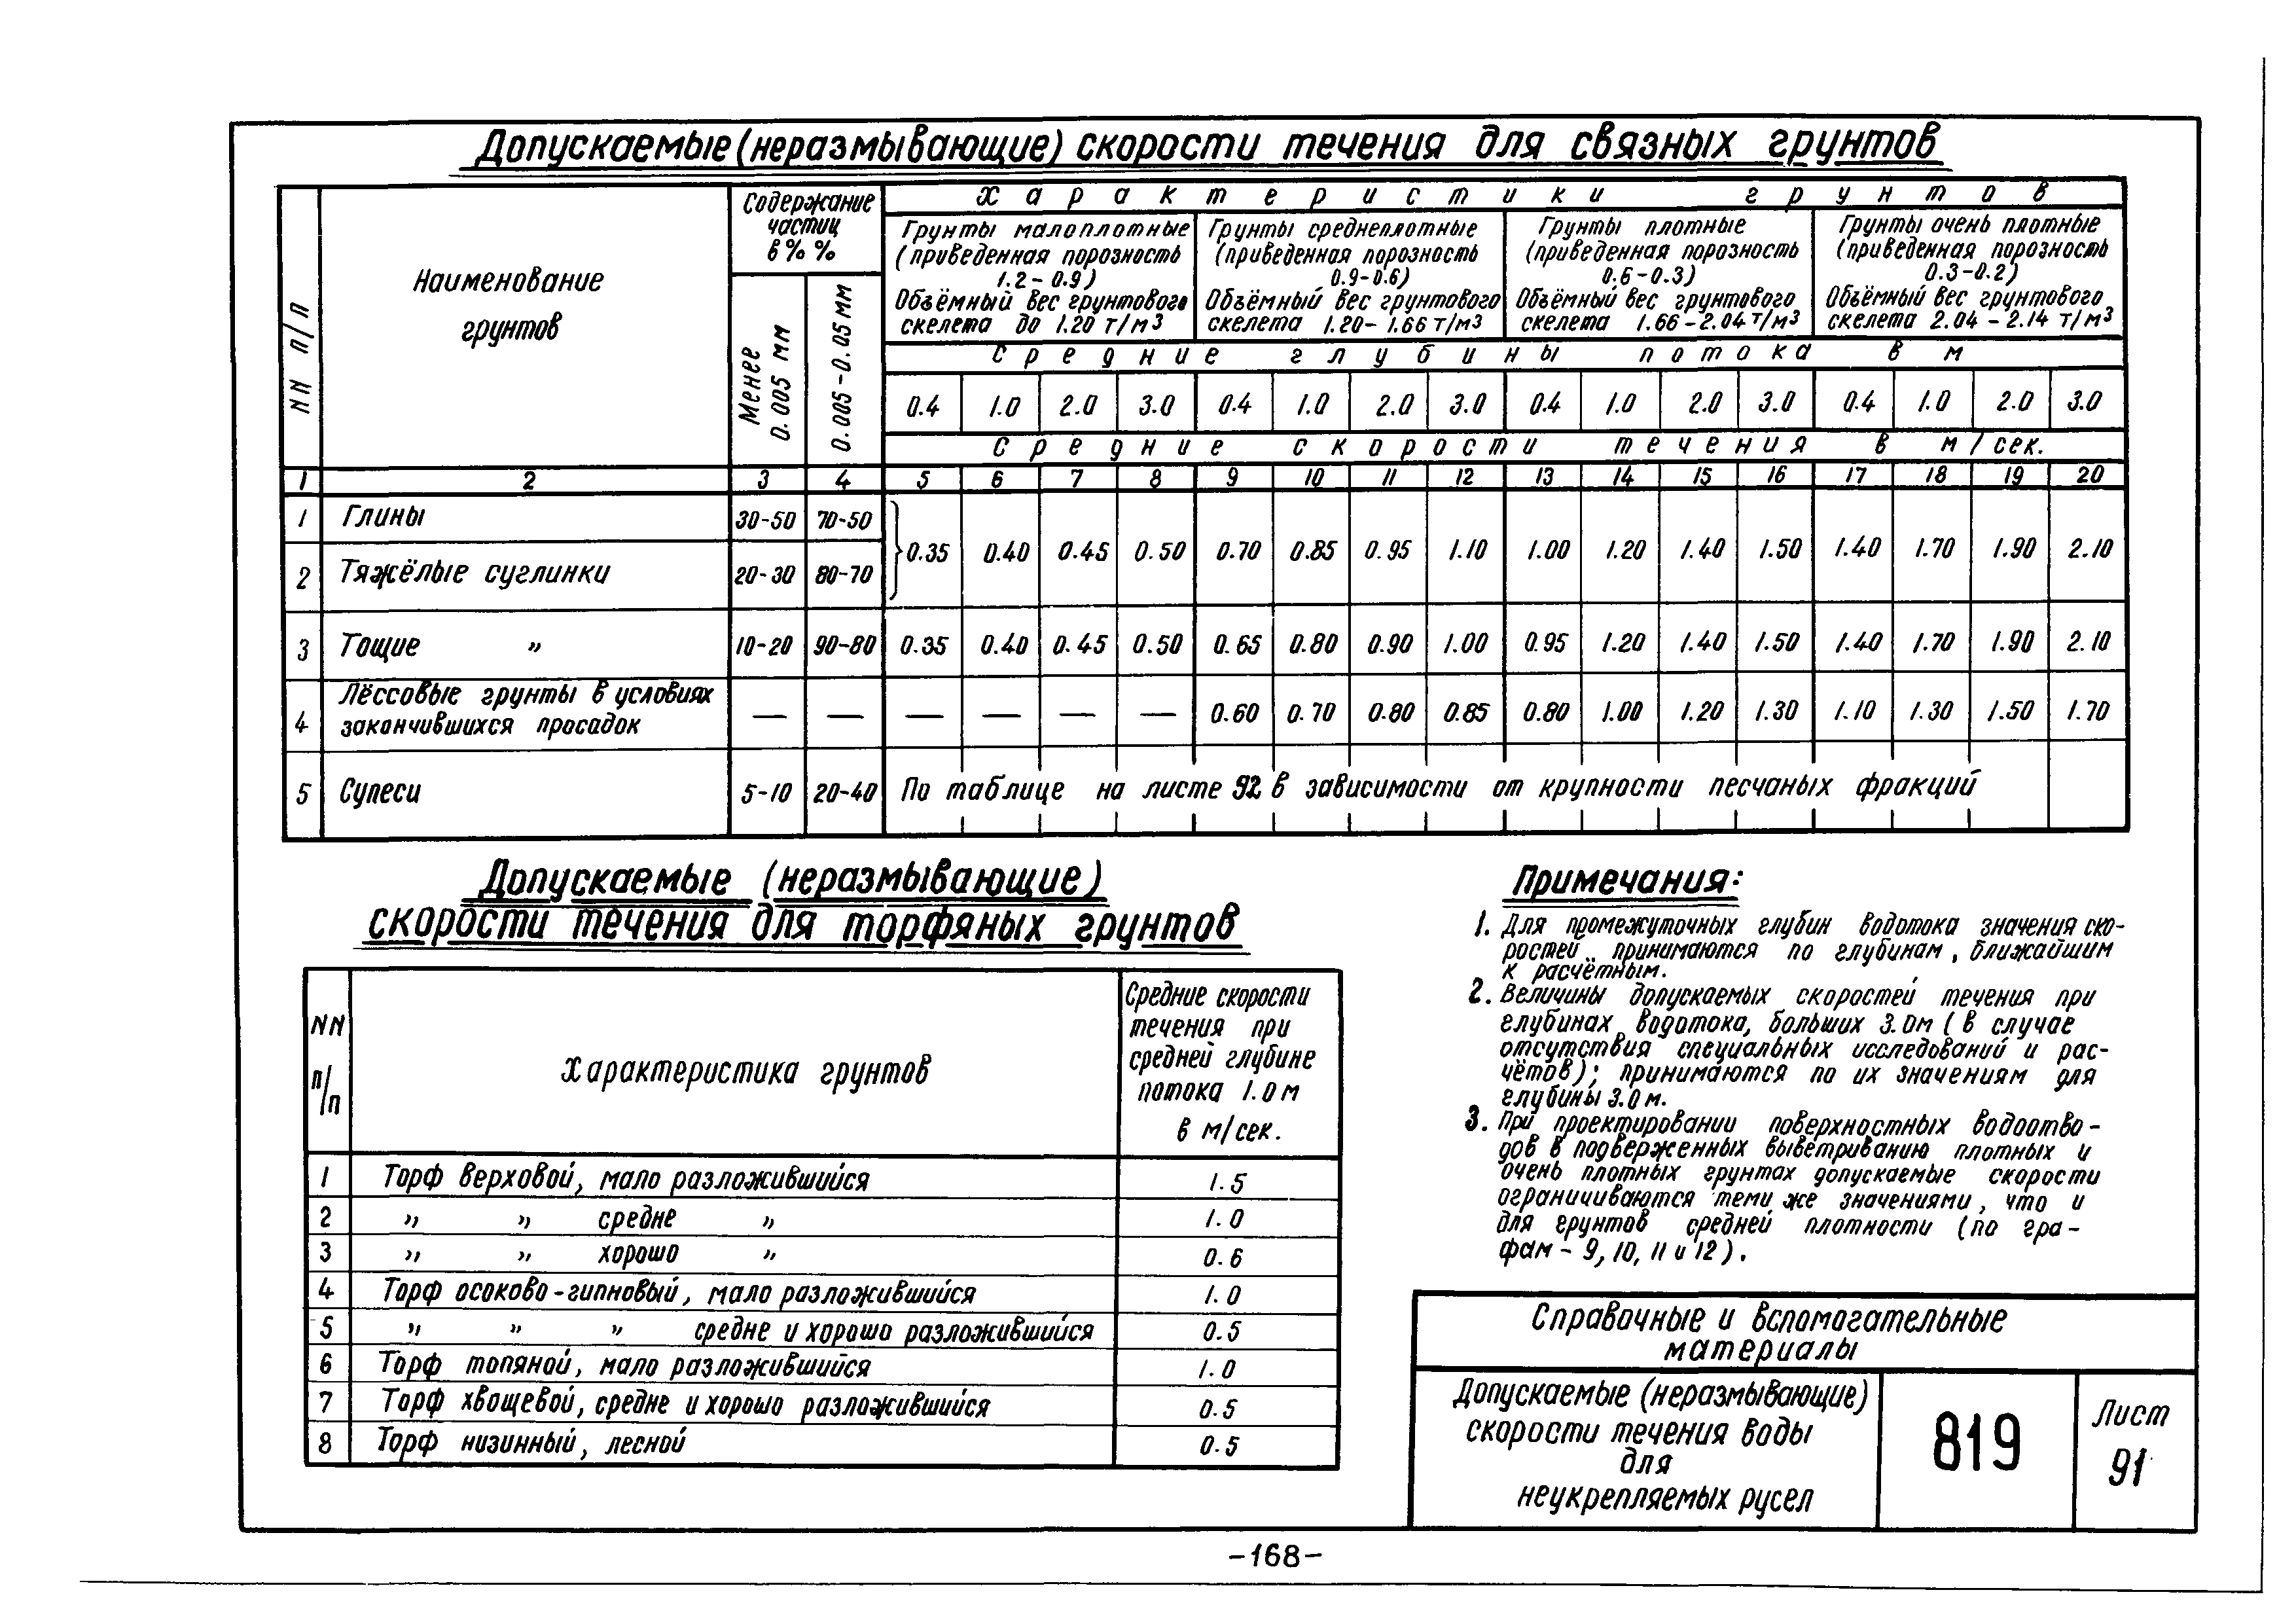 Допускаемые (неразмывающие) скорости течения для связных грунтов
NN п/п
Наименование
грунтов
Содержание
частиц
в % %
Менее
0.005 мм
0.005-0.05 мм
Характеристики грунтов
Грунты малоплотные
(приведенная порозность
1.2-0.9)
Объёмный вес грунтового
скелета до 1.20 т/м3
Грунты среднеплотные
(приведенная порозность
0.9-0.6)
Объёмный вес грунтового
скелета 1.20-1.66 т/м3
Грунты плотные
(приведенная порозность
0.6-0.3)
Объёмный вес грунтового
скелета 1.66-2.04 т/м3
Грунты очень плотные
(приведенная порозность
0.3-0.2)
Объёмный вес грунтового
скелета 2.04-2.14 т/м3
Средние глубины потока в м
0.4 1.0 2.0 3.0 0.4 1.0 2.0 3.0 0.4 1.0 2.0 3.0 0.4 1.0 2.0 3.0
Средние скорости течения в м/сек.
1 2 3 4 5 6 7 8 9 10 11 12 13 14 15 16 17 18 19 20
1 Глины 30-50 70-50
0.35 0.40 0.45 0.50 0.70 0.85 0.95 1.10 1.00 1.20 1.40 1.50 1.40 1.70 1.90 2.10
2 Тяжёлые суглинки 20-30 80-70
3 Тощие " 10-20 90-80 0.35 0.40 0.45 0.50 0.65 0.80 0.90 1.00 0.95 1.20 1.40 1.50 1.40 1.70 1.90 2.10
4 Лёссовые грунты в условиях
закончившихся просадок — — — — — — 0.60 0.70 0.80 0.85 0.80 1.00 1.20 1.30 1.10 1.30 1.50 1.70
5 Супеси 5-10 20-40 По таблице на листе 92 в зависимости от крупности песчаных фракций
Допускаемые (неразмывающие)
скорости течения для торфяных грунтов
NN
п/п
Характеристика грунтов
Средние скорости
течения при
средней глубине
потока 1.0 м
в м/сек.
1 Торф верховой, мало разложившийся 1.5
2 " " средне " 1.0
3 " " хорошо " 0.6
4 Торф осоково-гипновый, мало разложившийся 1.0
5 " " " средне и хорошо разложившийся 0.5
6 Торф топяной, мало разложившийся 1.0
7 Торф хвощевой, средне и хорошо разложившийся 0.5
8 Торф низинный, лесной 0.5
Примечания:
1. Для промежуточных глубин водотока значения ско-
ростей принимаются по глубинам, ближайшим
к расчётным.
2. Величины допускаемых скоростей течения при
глубинах водотока, больших 3.0м (в случае
отсутствия специальных исследований и рас-
чётов); принимаются по их значениям для
глубины 3.0 м.
3. При проектировании поверхностных водоотво-
дов в подверженных выветриванию плотных и
очень плотных грунтах допускаемые скорости
ограничиваются теми же значениями, что и
для грунтов средней плотности (по гра-
фам - 9, 10, 11 и 12).
Справочные и вспомогательные
материалы
Допускаемые (неразмывающие)
скорости течения воды
для
неукрепляемых русел
819
Лист
91
-168-